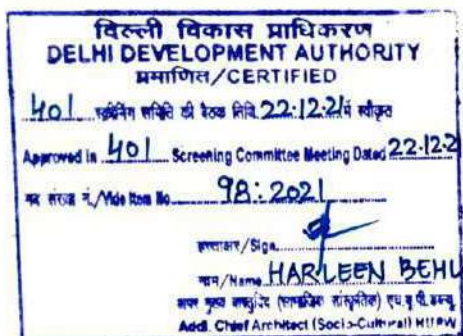 दिल्ली विकास प्राधिकरण
DELHI DEVELOPMENT AUTHORITY
प्रमाणित/CERTIFIED
401 स्क्रीनिंग समिति की बैठक तिथि 22.12.21 में स्वीकृत
Approved in 401 Screening Committee Meeting Dated 22.12.2
मद संख्या नं./Vide Item No 98:2021
हस्ताक्षर/Sign.
नाम/Name HARLEEN BEHL
अपर मुख्य वास्तुविद (सामाजिक सांस्कृतिक) एच.यू.पी.डब्ल्यू
Addl. Chief Architect (Socio-Cultural) HUPW